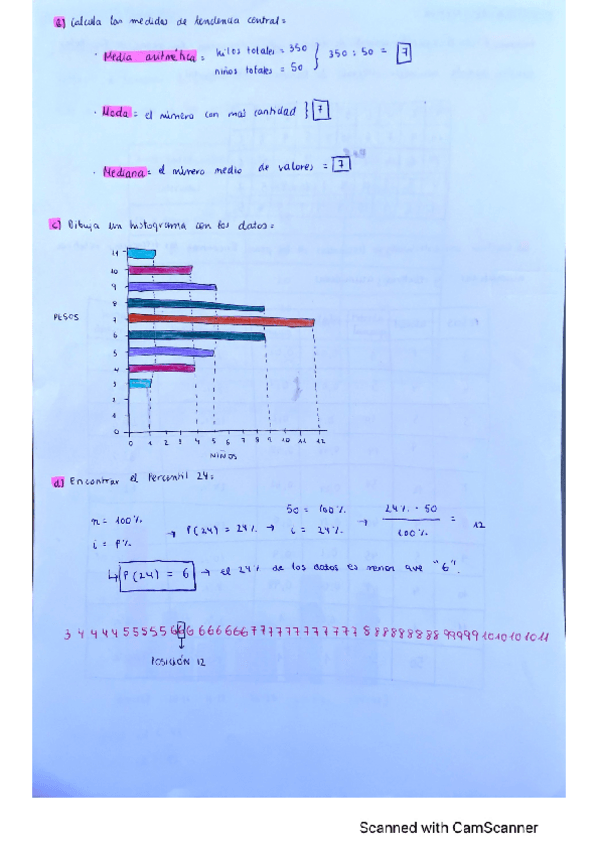 b) Calcula las medidas de tendencia central:
· Media aritmética = kilos totales = 350
niños totales = 50
350 : 50 = 7
· Moda = el número con mas cantidad } 7
· Mediana = el número medio de valores = 7
c) Dibuja un histograma con los datos:
PESOS
11
10
9
8
7
6
5
4
3
2
1
0
0 1 2 3 4 5 6 7 8 9 10 11 12
NIÑOS
d) Encontrar el Percentil 24:
n = 100%
i = P%
→ P(24) = 24% →
50 = 100%
i = 24%
→ 24% · 50
100%
= 12
↳ P(24) = 6 → el 24% de los datos es menor que "6".
3 4 4 4 4 5 5 5 5 5 6 6 6 6 6 6 6 6 6 7 7 7 7 7 7 7 7 7 7 7 7 8 8 8 8 8 8 8 8 8 9 9 9 9 9 10 10 10 10 11
POSICIÓN 12
Scanned with CamScanner